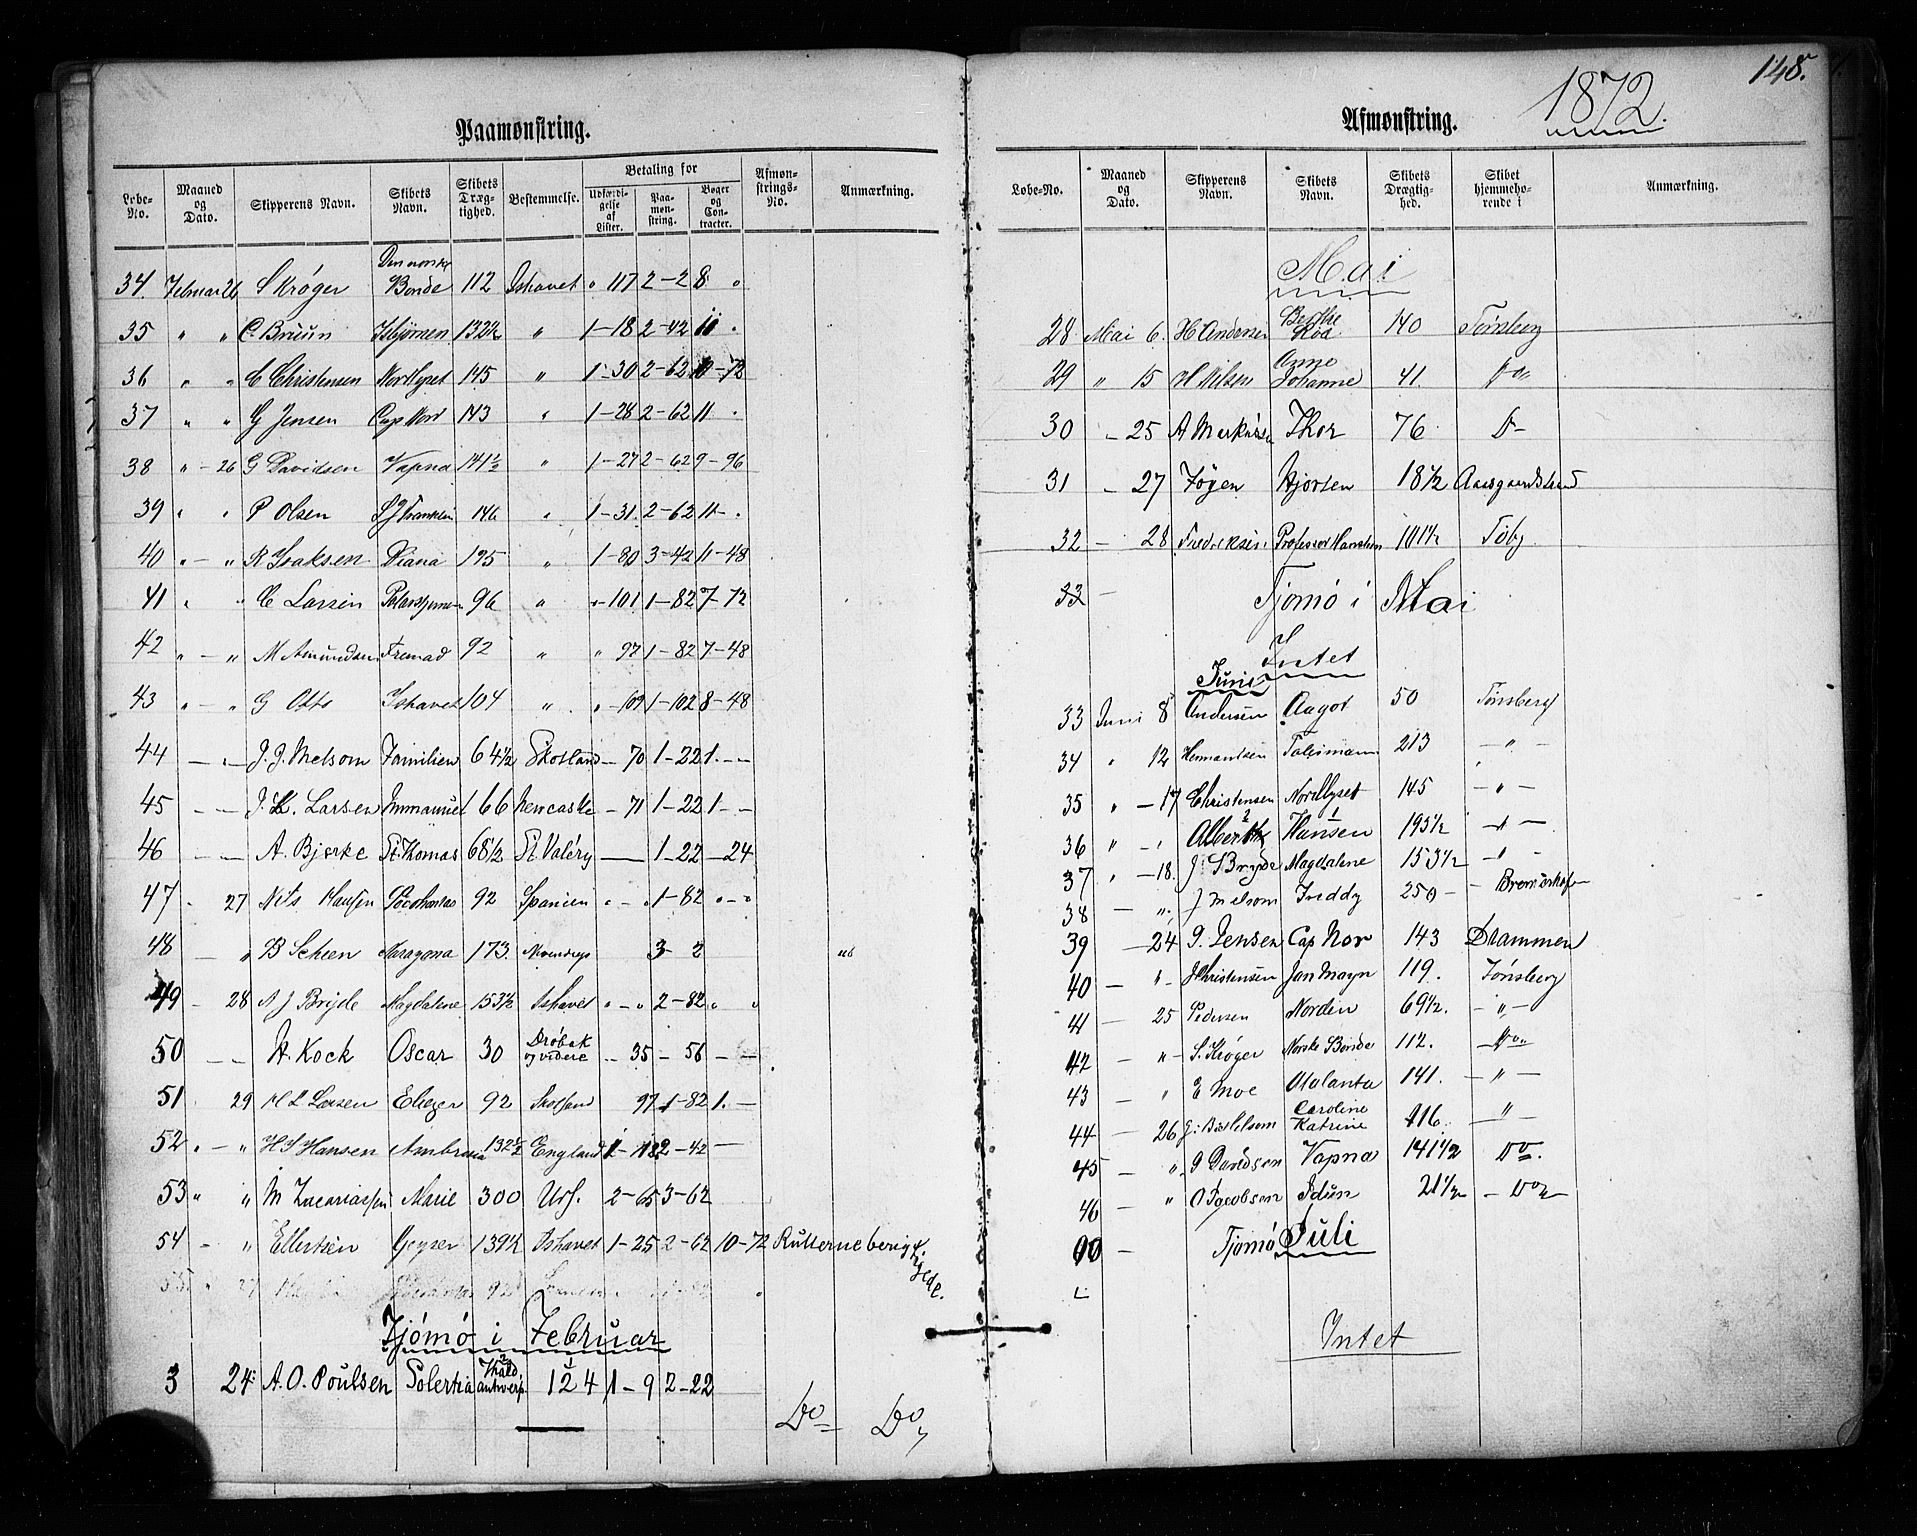 Paamønstring.
Løbe-No. | Maaned og Dato. | Skipperens Navn. | Skibets Navn. | Skibets Dræg-tighed. | Bestemmelse. | Betaling for | Udfærdi-gelse af Lister. | Paa-mon-string. | Bøger og Con-tracter. | Afmøn-strings-No. | Anmærkning.
34. Februar 26 S Krøger Den norske Bonde 112 Ishavet " 117 2-2 8 "
35 " " C. Bruun Isbjørnen 132½ " 1-18 2-42 10 "
36 " " C Christensen Nordlyset 145 " 1-30 2-62 10-72
37 " " G Jensen Cap Nord 143 " 1-28 2-62 11 "
38 " - 26 G Davidsen Vapna 141½ " 1-27 2-62 9-96
39 " " P Olsen S J Franklin 146 " 1-31 2-62 11- "
40 " - " R Isaksen Diana 195 " 1-80 3-42 11-48
41 " " C Larsen Polarstjernen 96 " "-101 1-82 7-72
42 " - " M Amundsen Fremad 92 " " 97 1-82 7-48
43 " - " G Otto Ishavet 104 " " -109 1-102 8-48
44 - "- J. J. Melsom Familien 64½ Skotland - 70 1-22 1.--
45 - - J. L. Larsen Immanuel 166 Newcastle - 71 1-22 1.-
46 - - A. Bjerke St. Thomas 68½ St. Valéry - 1-22 -24
47 - 27 Nils Hansen Pocohontas 92 Spanien " - " 1-82 "-"
48 - " B Scheen Tarragona 173. 3- 2
49 - 28 A J Bryde Magdalene 153½ Ishavet "-" 2-82 " "
50 - - H. Kock Oscar 30 Drøbak og videre - 35 - 56 - -
51 29 H L Larsen Eliezer 92 Skotland 97 1-82 1.-
52 " " H S Hansen Ambrosia 132½ England 1-18 2-42 -
53 " " M Zacariassen Marie 300 2-65 3-62
54 - " Ellertsen Geyser 139½ Ishavet 1-25 2-62 10-72 Rullerne berigtigede.
55 " 27 92
Tjømø i Februar
3 24: A. O. Poulsen Solertia Antwerp. 124 1-9 2-22
Do Do
148.
1872.
Afmønstring.
Løbe-No. | Maaned og Dato. | Skipperens Navn. | Skibets Navn. | Skibets Drægtig-hed. | Skibet hjemmehø-rende i | Anmærkning.
Mai
28 Mai 6. H Andersen Berthe Roa 140 Tønsberg
29 " 15 H Nilsen Anne Johanne 41. Do
30 - 25 A Markussen Thor 76 D-
31 - 27 Føyen Hjorten 18½ Aasgaardstrand
32 - 28 Fredriksen Professor Hansteen 101½ Tbg
33 - Tjømø i Mai
Intet
Juni
33 Juni 8 Andersen Aagot 50 Tønsberg
34 " 12 Hermansen Talisman 213 - " -
35 " -17 Christensen Nordlyset 145 - " -
36 " - " Albert 2 Hansen 1 195½ - " -
37 " -18. J. S Bryde Magdalene 153½ - " -
38 - " J Melsom Freddy 250 - - Bremerhafen
39 -24 G. Jensen Cap Nor 143 Drammen
40 - " - J Christensen Jan Mayn 119. Tønsberg
41 - 25 Pedersen Norden 69½. - " -
42 - " - S. Krøger Norske Bonde 112. - Do
43 - " E Moe Atalanta 141. - " -
44 - 26 Caroline Katrine 116. - " -
45 - " G Davidsen Vapna 141½ Do.
46 " O Jacobsen Idun 21½ - Do
00 - Tjømø Juli
Intet